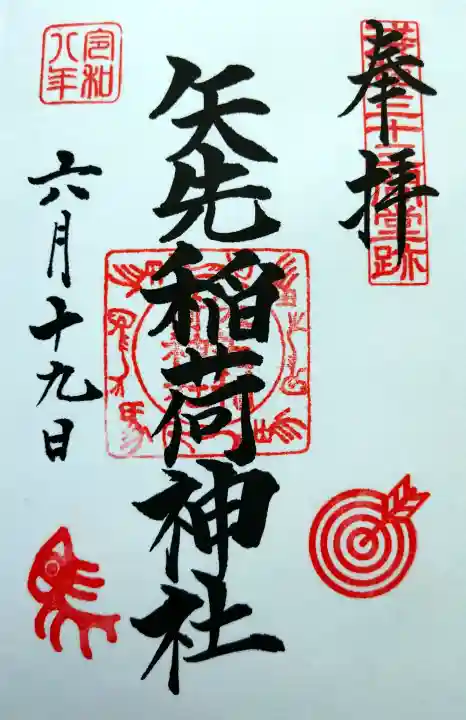 奉拝
矢先稲荷神社
令和八年
六月十九日